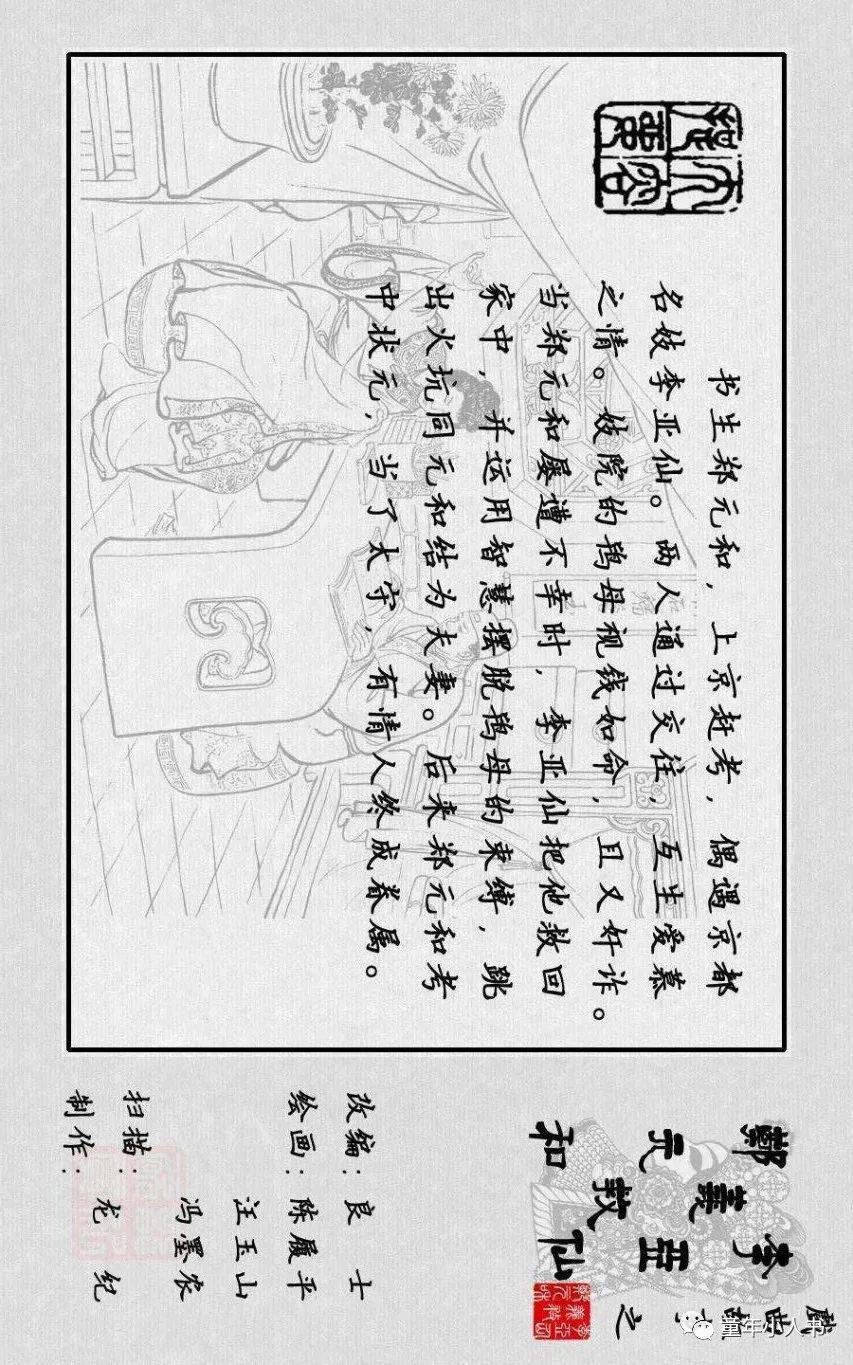 内容提要
书生郑元和，上京赶考，偶遇京都
名妓李亚仙。两人通过交往，互生爱慕
之情。妓院的鸨母视钱如命，且又奸诈。
当郑元和屡遭不幸时，李亚仙把他救回
家中，并运用智慧摆脱鸨母的束缚，跳
出火坑同元和结为夫妻。后来郑元和考
中状元，当了太守，有情人终成眷属。
戲曲之
李亞仙
義救
鄭元和
改编：良士
绘画：陈履平
汪玉山
冯墨农
扫描：
制作：龙纪
童年小人书